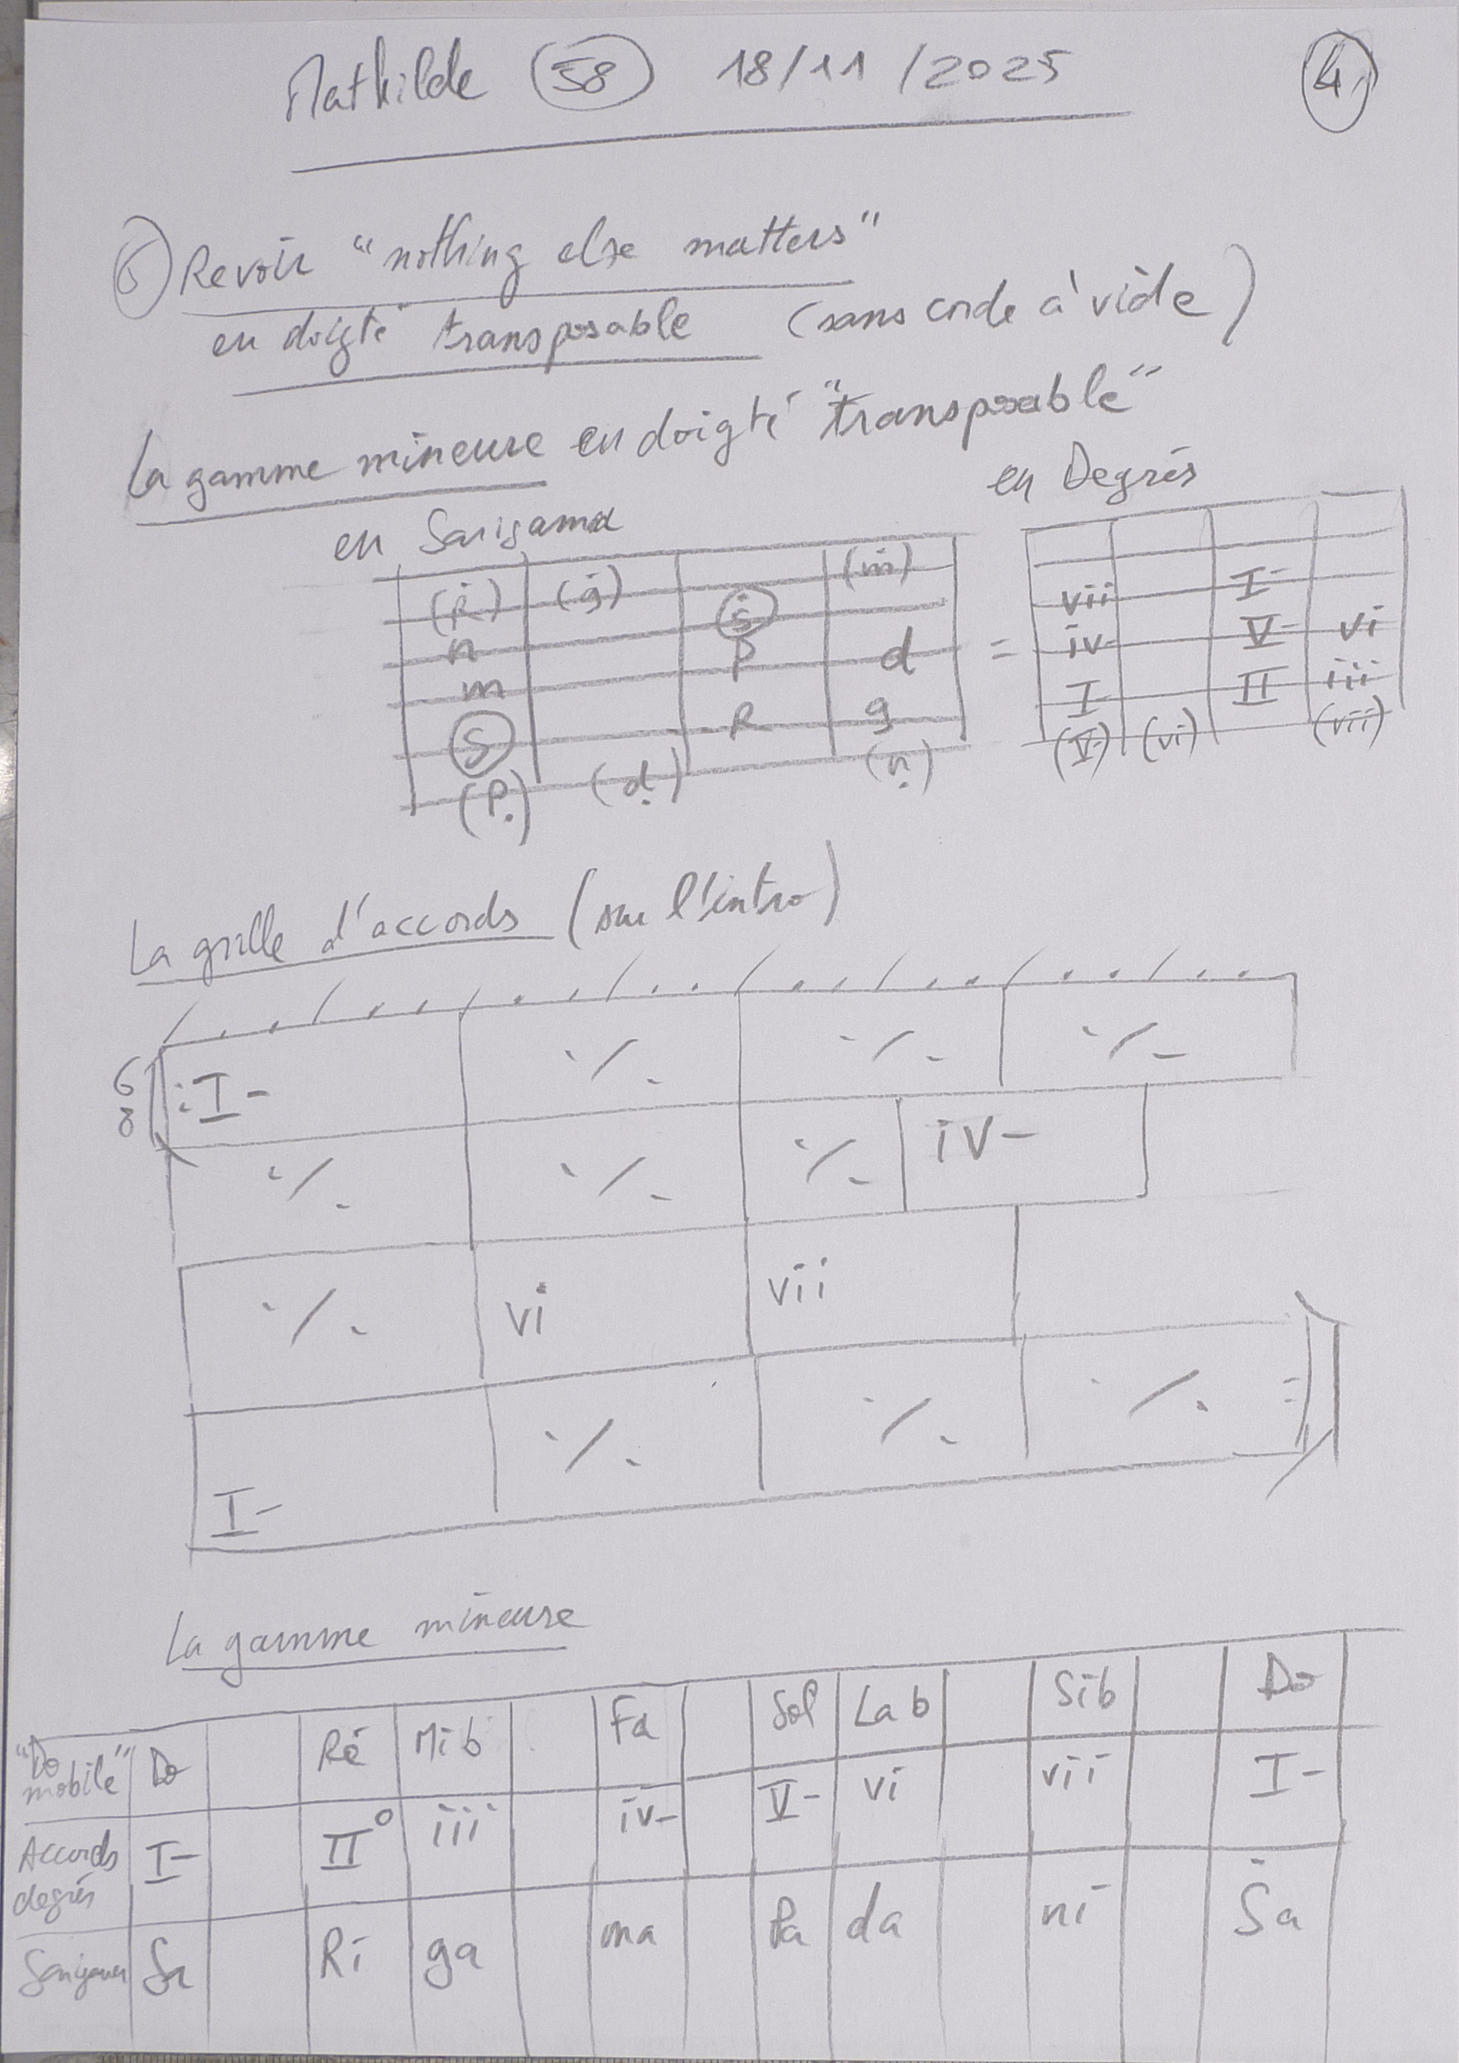 Mathilde 58 18/11/2025 4
6 Revoir "nothing else matters"
en doigté transposable (sans corde à vide)
La gamme mineure en doigté "transposable"
en Sarigama en Degrés
(Ṙ) (ġ) Ṡ (ṁ)
n P d
m R g
S
(P.) (ḍ) (ṇ)
=
vii I-
iv- V- vi
I- II iii
(V-) (vi) (vii)
La grille d'accords (sur l'intro)
6
8
: I- ٪ ٪ ٪
٪ ٪ ٪ iv-
٪ vi vii
I- ٪ ٪ ٪ :
La gamme mineure
"Do mobile" Do Ré Mib Fa Sol Lab Sib Do
Accords degrés I- II° iii iv- V- vi vii I-
Sarigama Sa Ri ga ma Pa da ni Ṡa